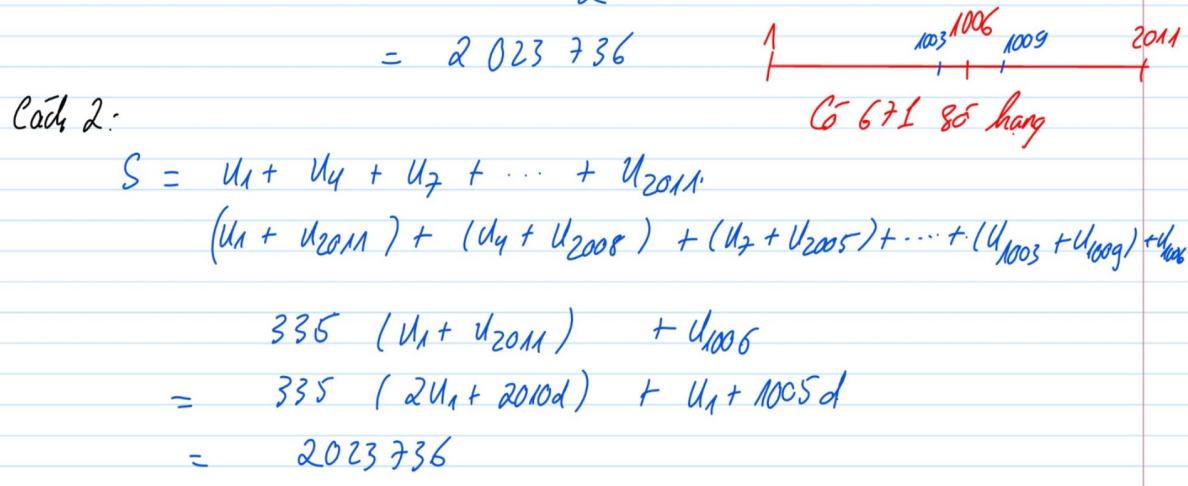 = 2 023 736
1 1003 1006 1009 2011
Có 671 số hạng
Cách 2:
S = u₁ + u₄ + u₇ + ... + u₂₀₁₁.
(u₁ + u₂₀₁₁) + (u₄ + u₂₀₀₈) + (u₇ + u₂₀₀₅) + .... + (u₁₀₀₃ + u₁₀₀₉) + u₁₀₀₆
335 (u₁ + u₂₀₁₁) + u₁₀₀₆
= 335 (2u₁ + 2010d) + u₁ + 1005d
= 2023736